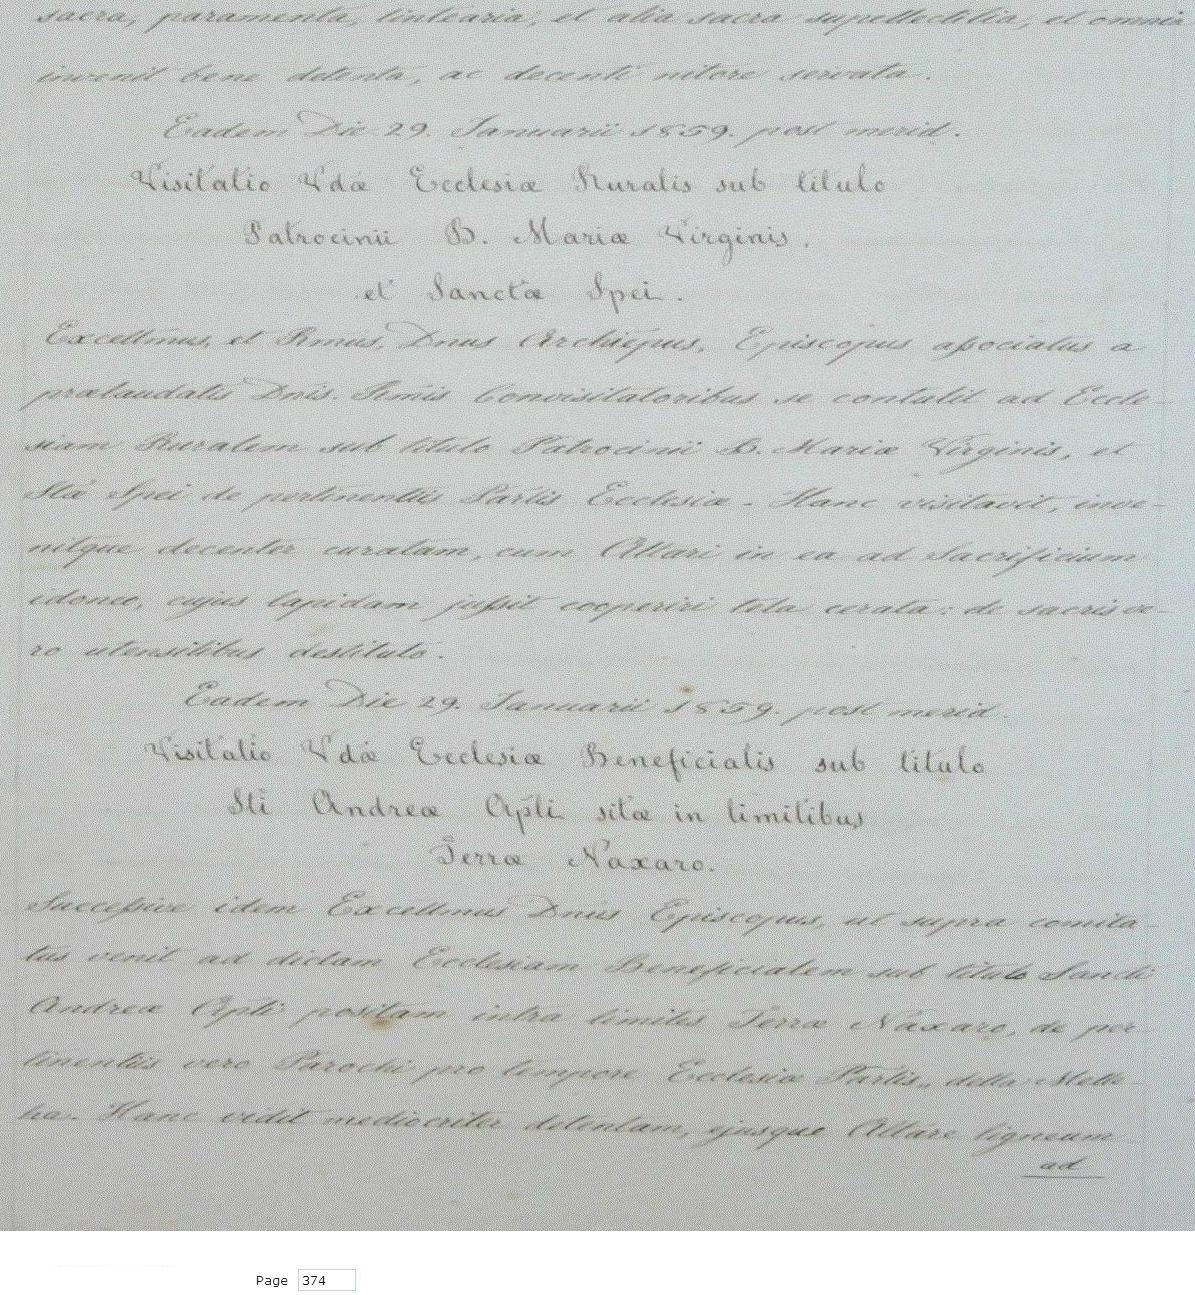 sacra, paramenta, lintearia, et alia sacra supellectilia, et omnia
invenit bene detenta, ac decenti nitore servata.
Eadem Die 29. Januarii 1859. post merid.
Visitatio Vdæ Ecclesiæ Ruralis sub titulo
Patrocinii B. Mariæ Virginis,
et Sanctæ Spei.
Excellmus, et Rmus, Dnus Archiepus, Episcopus aſsociatus a
prælaudatis Dnis. Rmis Convisitatoribus se contulit ad Eccle-
siam Ruralem sub titulo Patrocinii B. Mariæ Virginis, et
Stæ Spei de pertinentiis Partis Ecclesiæ. Hanc visitavit, inve-
nitque decenter curatam, cum Altari in ea ad Sacrificium
idoneo, cujus lapidam juſsit cooperiri tela cerata: de sacris ve-
ro utensilibus destituto.
Eadem Die 29. Januarii 1859. post merid.
Visitatio Vdæ Ecclesiæ Beneficialis sub titulo
Sti Andreæ Apli sitæ in limitibus
Terræ Naxaro.
Succeſsive idem Excellmus Dnus Episcopus, ut supra comita-
tus venit ad dictam Ecclesiam Beneficialem sub titulo Sancti
Andreæ Apli positam intra limites Terræ Naxaro, de per-
tinentiis vero Parochi pro tempore Ecclesiæ Partis, della Melle-
ha. Hanc vidit mediocriter detentam, ejusque Altare ligneum
ad
Page 374